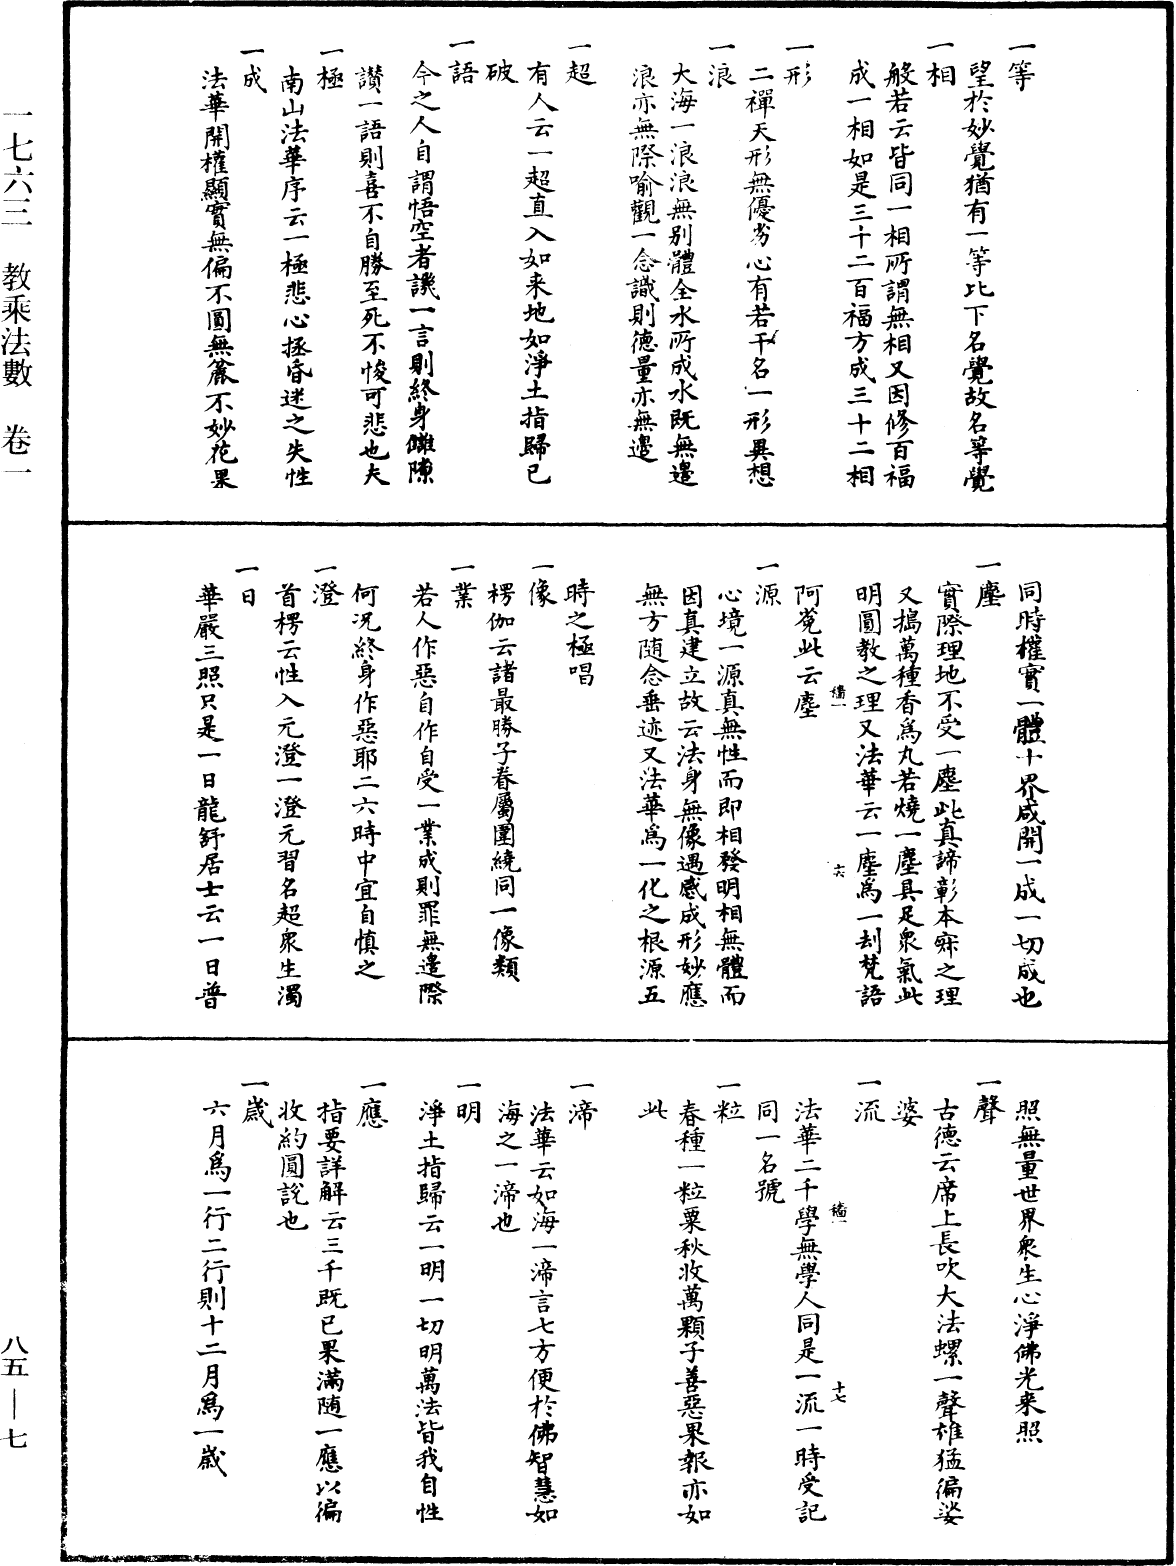 一等
望於妙覺猶有一等比下名覺故名等覺
一相
般若云皆同一相所謂無相又因修百福
成一相如是三十二百福方成三十二相
一形
二禪天形無優劣心有若干名一形異想
一浪
大海一浪浪無別體全水所成水既無邊
浪亦無際喻觀一念識則德量亦無邊
一超
有人云一超直入如来地如淨土指歸已
破
一語
今之人自謂悟空者譏一言則終身讎隙
讃一語則喜不自勝至死不悛可悲也夫
一極
南山法華序云一極悲心拯昏迷之失性
一成
法華開權顯實無偏不圓無麤不妙花果
同時權實一體十界咸開一成一切成也
一塵
實際理地不受一塵此真諦彰本寂之理
又搗萬種香爲丸若燒一塵具足衆氣此
明圓教之理又法華云一塵爲一刦梵語
阿㝹此云塵
一源
心境一源真無性而即相發明相無體而
因真建立故云法身無像遇感成形妙應
無方随念垂迹又法華爲一化之根源五
時之極唱
一像
楞伽云諸最勝子眷屬圍繞同一像類
一業
若人作惡自作自受一業成則罪無邊際
何況終身作惡耶二六時中宜自慎之
一澄
首楞云性入元澄一澄元習名超衆生濁
一日
華嚴三照只是一日龍舒居士云一日普
照無量世界衆生心淨佛光来照
一聲
古德云席上長吹大法螺一聲雄猛徧娑
婆
一流
法華二千學無學人同是一流一時受記
同一名號
一粒
春種一粒粟秋收萬顆子善惡果報亦如
此
一渧
法華云如海一渧言七方便於佛智慧如
海之一渧也
一明
淨土指歸云一明一切明萬法皆我自性
一應
指要詳解云三千既已果滿随一應以徧
收約圓說也
一歲
六月爲一行二行則十二月爲一歲
一七六三　教乘法數　卷一
八五—七
六
十七